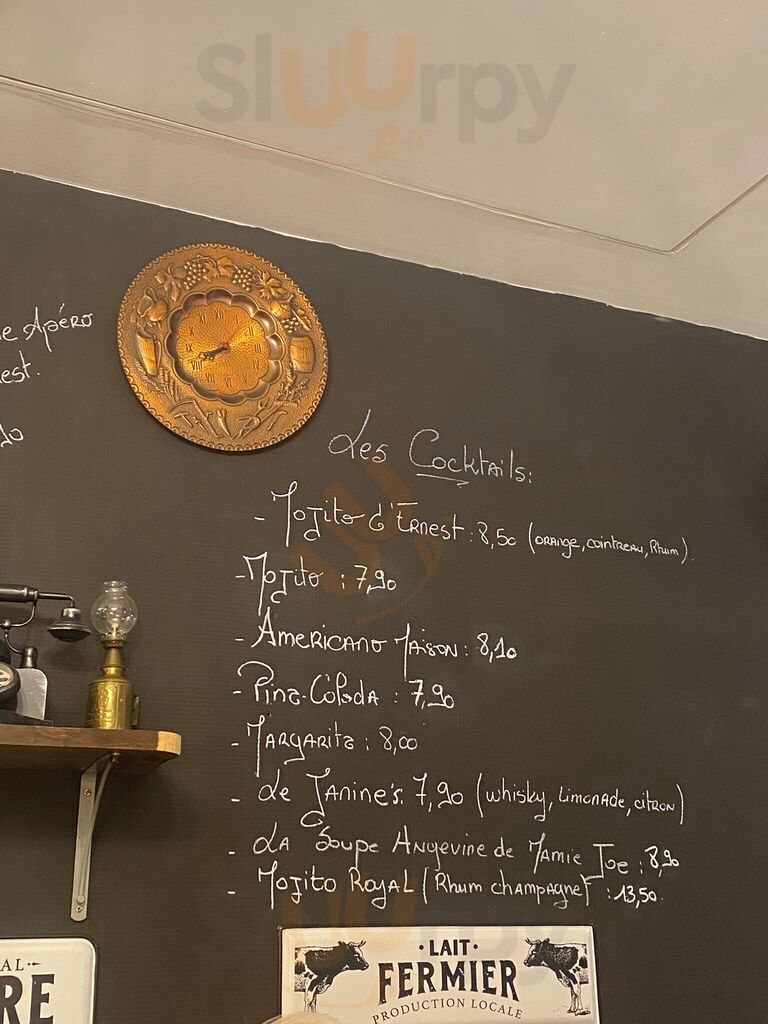 Sluurpy
e Apéro
est.
Les Cocktails:
- Mojito d'Ernest : 8,50 (orange, cointreau, Rhum).
- Mojito : 7,90
- Americano Maison : 8,10
- Pina-Colada : 7,90
- Margarita : 8,00
- Le Janine's : 7,90 (whisky, limonade, citron)
- La Soupe Angevine de Mamie Joe : 8,90
- Mojito Royal (Rhum champagne) : 13,50.
AL
RE
·LAIT·
FERMIER
PRODUCTION LOCALE